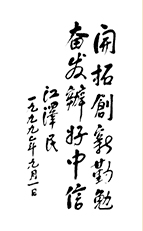 開拓創新勤勉
奋发辦好中信
江澤民
一九九九年九月一日